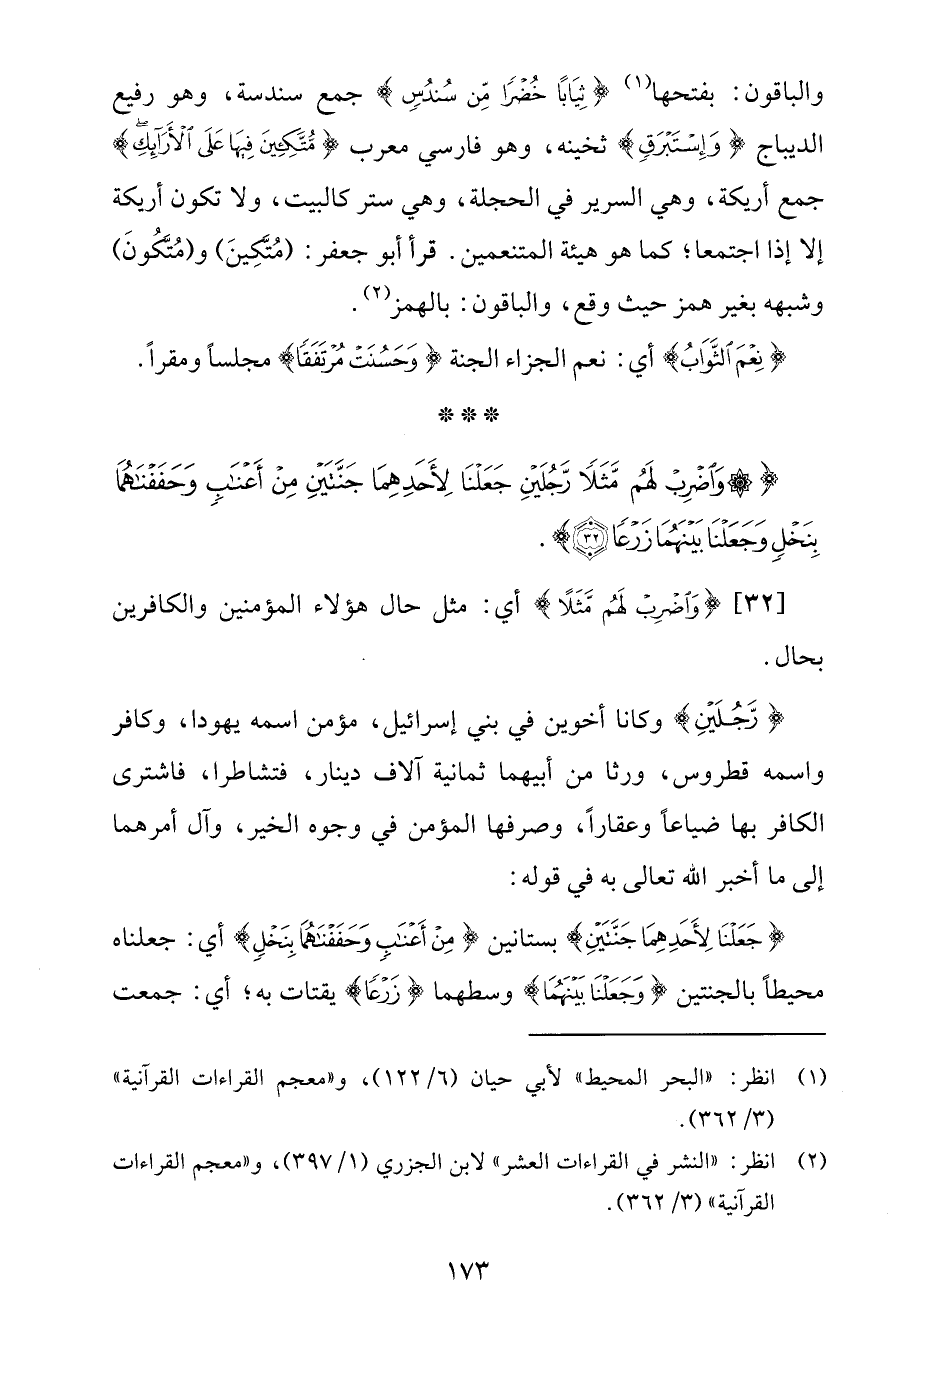 والباقون: بفتحها(١) ﴿ثِيَابًا خُضْرًا مِّن سُندُسٍ﴾ جمع سندسة، وهو رفيع
الديباج ﴿وَإِسْتَبْرَقٍ﴾ ثخينه، وهو فارسي معرب ﴿مُّتَّكِئِينَ فِيهَا عَلَى ٱلْأَرَآئِكِۚ﴾
جمع أريكة، وهي السرير في الحجلة، وهي ستر كالبيت، ولا تكون أريكة
إلا إذا اجتمعا؛ كما هو هيئة المتنعمين. قرأ أبو جعفر: (مُتَّكِينَ) و(مُتَّكُونَ)
وشبهه بغير همز حيث وقع، والباقون: بالهمز(٢).
﴿نِعْمَ ٱلثَّوَابُ﴾ أي: نعم الجزاء الجنة ﴿وَحَسُنَتْ مُرْتَفَقًا﴾ مجلساً ومقراً.
* * *
﴿۞ وَٱضْرِبْ لَهُم مَّثَلًا رَّجُلَيْنِ جَعَلْنَا لِأَحَدِهِمَا جَنَّتَيْنِ مِنْ أَعْنَٰبٍ وَحَفَفْنَٰهُمَا
بِنَخْلٍ وَجَعَلْنَا بَيْنَهُمَا زَرْعًا ٣٢﴾.
[٣٢] ﴿وَٱضْرِبْ لَهُم مَّثَلًا﴾ أي: مثل حال هؤلاء المؤمنين والكافرين
بحال.
﴿رَّجُلَيْنِ﴾ وكانا أخوين في بني إسرائيل، مؤمن اسمه يهودا، وكافر
واسمه قطروس، ورثا من أبيهما ثمانية آلاف دينار، فتشاطرا، فاشترى
الكافر بها ضياعاً وعقاراً، وصرفها المؤمن في وجوه الخير، وآل أمرهما
إلى ما أخبر الله تعالى به في قوله:
﴿جَعَلْنَا لِأَحَدِهِمَا جَنَّتَيْنِ﴾ بستانين ﴿مِنْ أَعْنَٰبٍ وَحَفَفْنَٰهُمَا بِنَخْلٍ﴾ أي: جعلناه
محيطاً بالجنتين ﴿وَجَعَلْنَا بَيْنَهُمَا﴾ وسطهما ﴿زَرْعًا﴾ يقتات به؛ أي: جمعت
(١) انظر: «البحر المحيط» لأبي حيان (٦/ ١٢٢)، و«معجم القراءات القرآنية»
(٣/ ٣٦٢).
(٢) انظر: «النشر في القراءات العشر» لابن الجزري (١/ ٣٩٧)، و«معجم القراءات
القرآنية» (٣/ ٣٦٢).
١٧٣